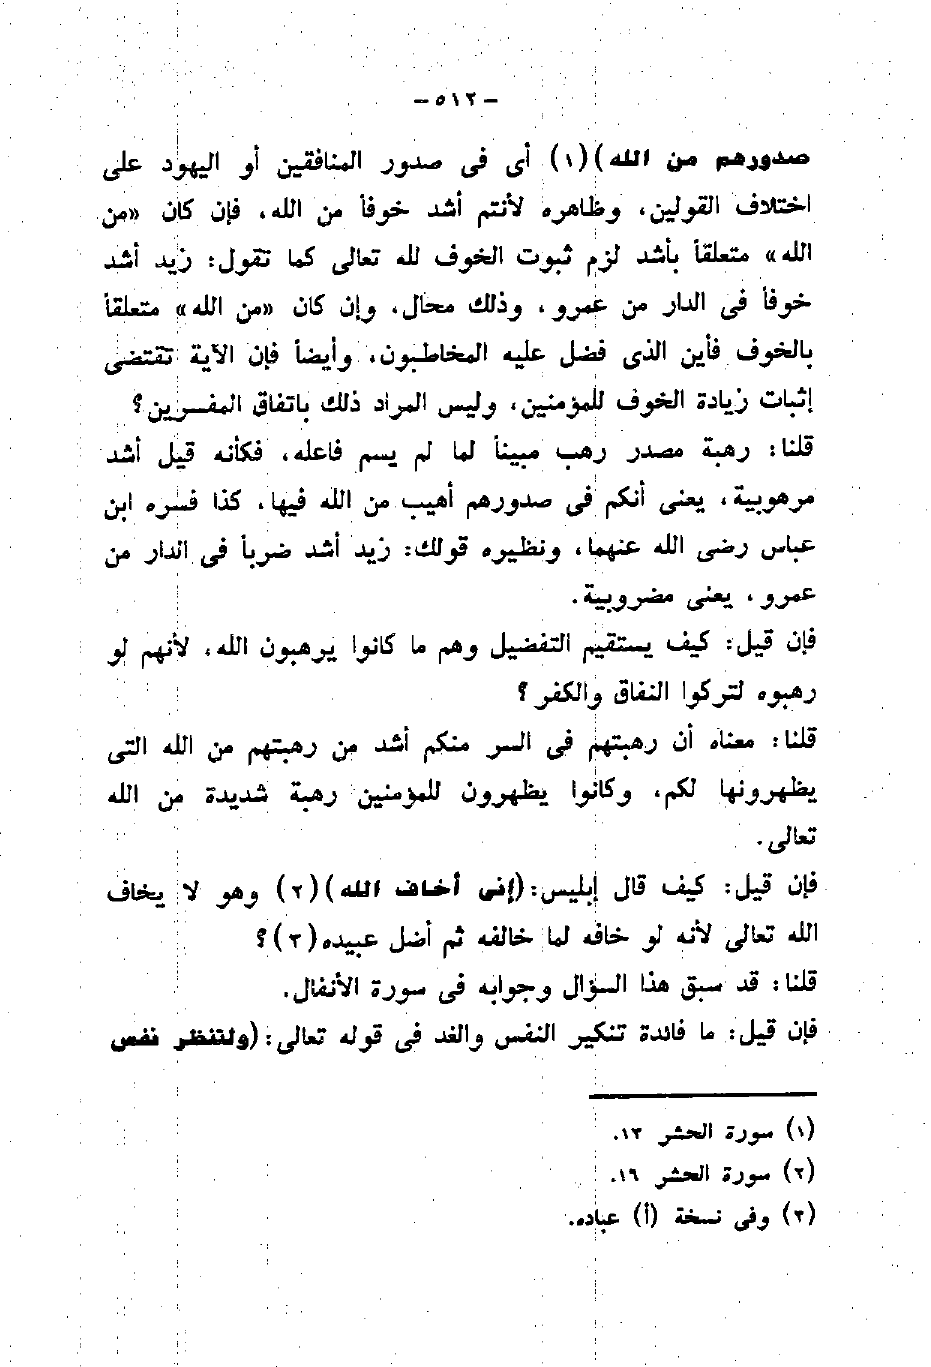 — ٥١٢ —
صدورهم من الله)(١) أى فى صدور المنافقين أو اليهود على
اختلاف القولين، وظاهره لأنتم أشد خوفاً من الله، فإن كان «من
الله» متعلقاً بأشد لزم ثبوت الخوف لله تعالى كما تقول: زيد أشد
خوفاً فى الدار من عمرو ، وذلك محال، وإن كان «من الله» متعلقاً
بالخوف فأين الذى فضل عليه المخاطبون، وأيضاً فإن الآية تقتضى
إثبات زيادة الخوف للمؤمنين، وليس المراد ذلك باتفاق المفسرين؟
قلنا: رهبة مصدر رهب مبيناً لما لم يسم فاعله، فكأنه قيل أشد
مرهوبية، يعنى أنكم فى صدورهم أهيب من الله فيها، كذا فسره ابن
عباس رضى الله عنهما، ونظيره قولك: زيد أشد ضرباً فى الدار من
عمرو ، يعنى مضروبية.
فإن قيل: كيف يستقيم التفضيل وهم ما كانوا يرهبون الله، لأنهم لو
رهبوه لتركوا النفاق والكفر؟
قلنا: معناه أن رهبتهم فى السر منكم أشد من رهبتهم من الله التى
يظهرونها لكم، وكانوا يظهرون للمؤمنين رهبة شديدة من الله
تعالى.
فإن قيل: كيف قال إبليس: (إنى أخاف الله)(٢) وهو لا يخاف
الله تعالى لأنه لو خافه لما خالفه ثم أضل عبيده(٣)؟
قلنا: قد سبق هذا السؤال وجوابه فى سورة الأنفال.
فإن قيل: ما فائدة تنكير النفس والغد فى قوله تعالى: (ولتنظر نفس
(١) سورة الحشر ١٣.
(٢) سورة الحشر ١٦.
(٣) وفى نسخة (أ) عباده.